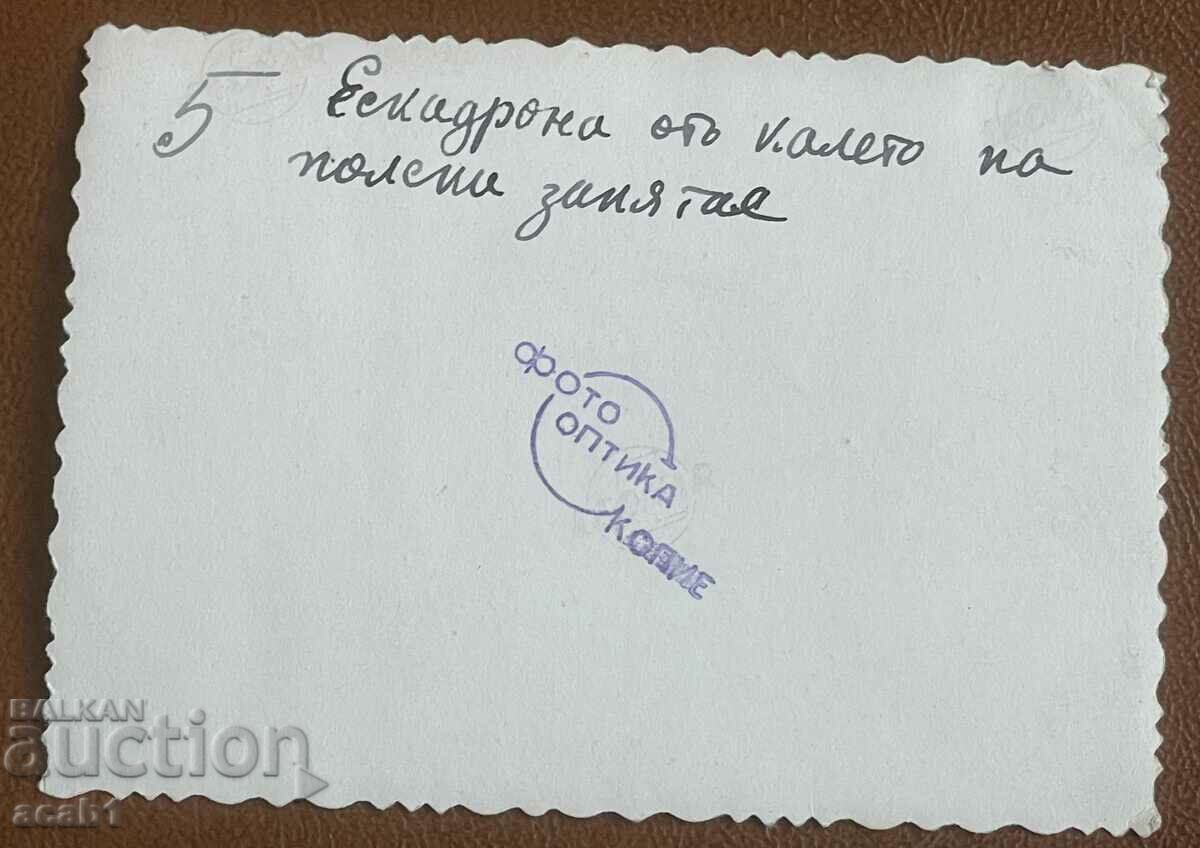 5 Ескадрона отъ калето на
полски занятая
ФОТО
ОПТИКА
КОПИЕ
BALKAN
auction
acab1